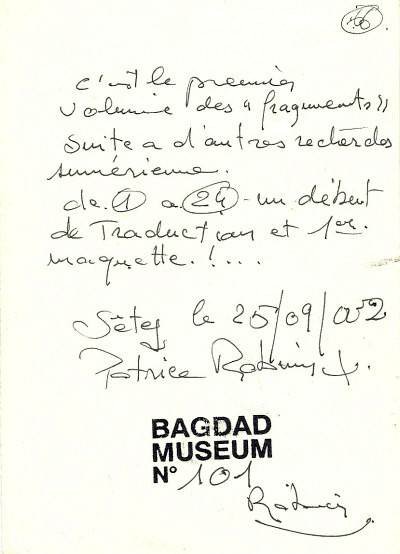 46.
c'est le premier
volume des "fragments"
suite a d'autres recherches
sumérienne.
de ① a ㉔ - un début
de Traduction et 1er.
maquette.!....
Sète le 25/09/002
Patrice
BAGDAD
MUSEUM
N° 101